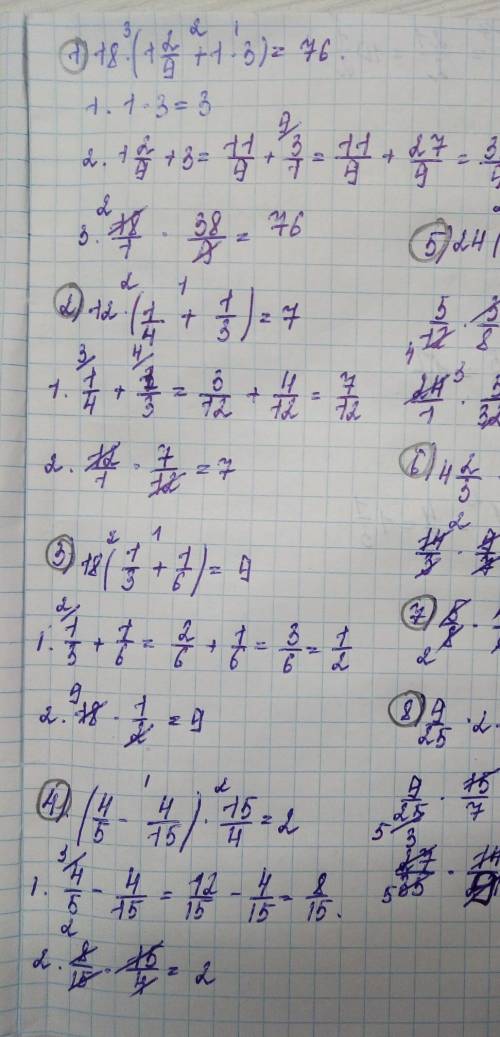 1) 18 · (1 2/9 + 1 · 3) = 76.
1. 1 · 3 = 3
2. 1 2/9 + 3 = 11/9 + 3/1 = 11/9 + 27/9 =
3. 18/1 · 38/9 = 76
2) 12 · (1/4 + 1/3) = 7
1. 1/4 + 1/3 = 3/12 + 4/12 = 7/12
2. 12/1 · 7/12 = 7
3) 18 (1/3 + 1/6) = 9
1. 1/3 + 1/6 = 2/6 + 1/6 = 3/6 = 1/2
2. 18 · 1/2 = 9
4) (4/5 - 4/15) · 15/4 = 2
1. 4/5 - 4/15 = 12/15 - 4/15 = 8/15.
2. 8/15 · 15/4 = 2
5) 24 (
5/12 · 3/8
24/1 ·
6) 4 2/3
14/3 ·
7)
8) 9/25 · 2
9/25 · 15/7